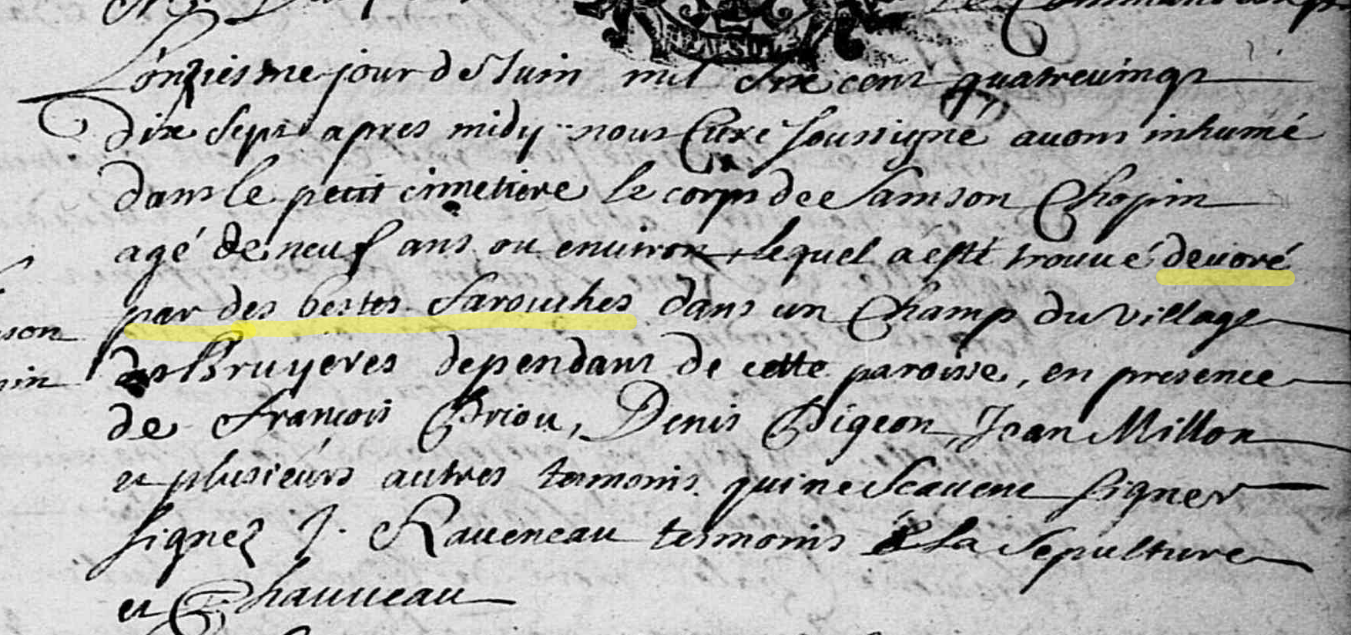 L'onziesme jour de Juin mil six cent quatrevingt
dix sept apres midy nous Curé soussigné avons inhumé
dans le petit cimetiere le corps de Samson Chopin
agé de neuf ans ou environ lequel a esté trouvé devoré
par des bestes farouches dans un Champ du village
des Bruyeres dependant de cette paroisse, en presence
de francois Priou, Denis Pigeon, Jean Millon
et plusieurs autres temoins qui ne scavent signer
signez J. Raveneau tesmoins a la sepulture
et Chauveau